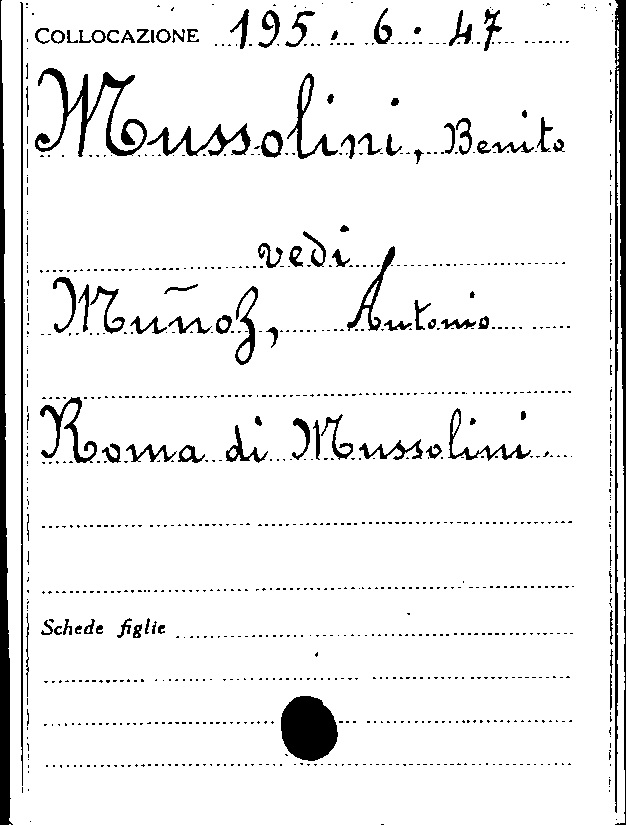 COLLOCAZIONE 195. 6. 47
Mussolini, Benito
vedi
Muñoz, Antonio
Roma di Mussolini.
Schede figlie